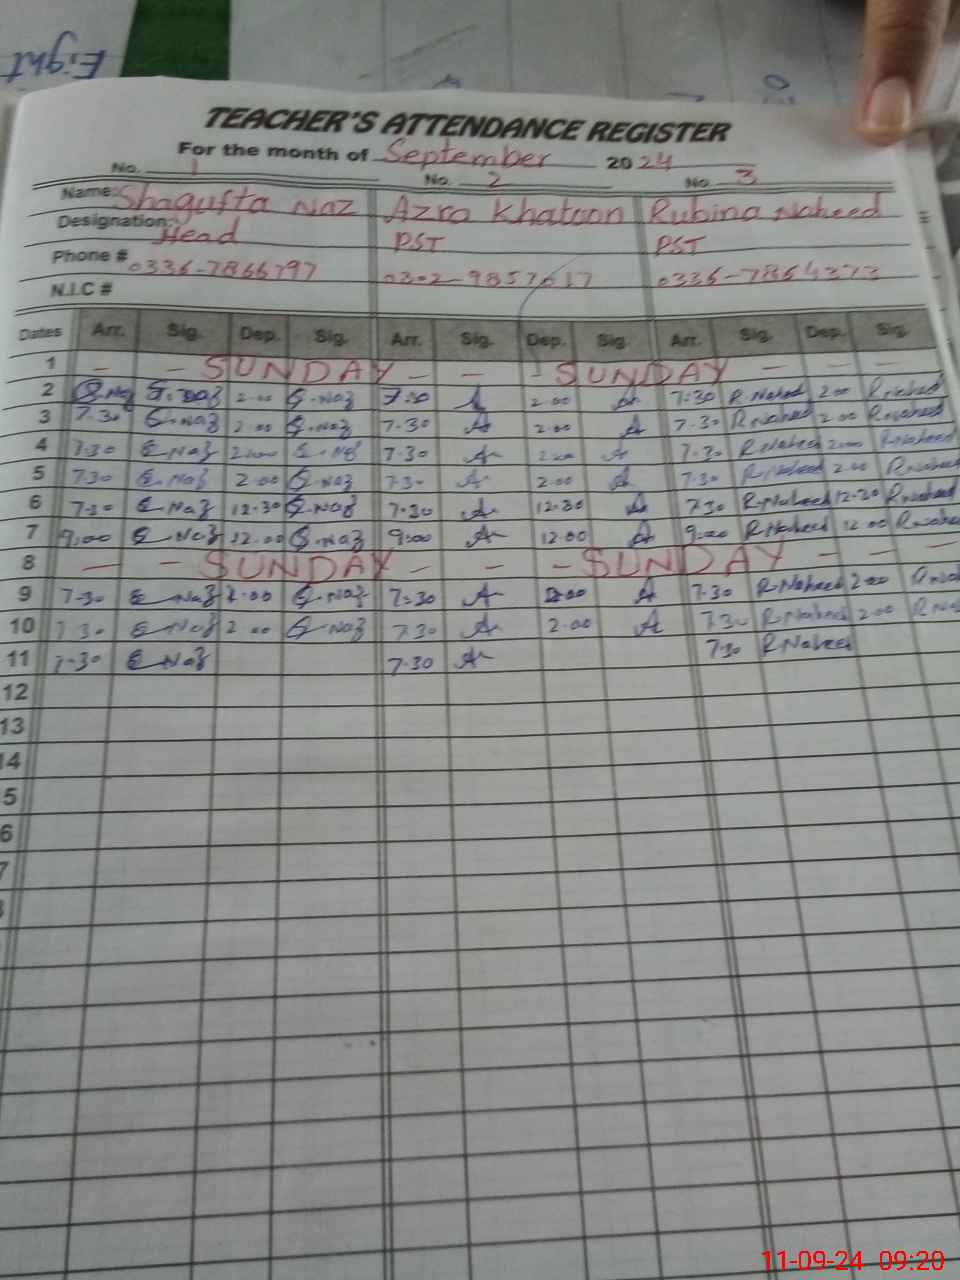 Eight
TEACHER'S ATTENDANCE REGISTER
For the month of September 2024
No. 1 No. 2 No 3
Name: Shagufta Naz Azra Khatoon Rubina Naheed
Designation: Head PST PST
Phone # 0336-7866797 0302-9857617 0336-7864373
N.I.C #
Dates Arr. Sig. Dep. Sig. Arr. Sig. Dep. Sig. Arr. Sig. Dep. Sig.
1 - - - SUNDAY - - - SUNDAY - - -
2 S.Naz S.Naz 2.00 S.Naz 7.30 A 2.00 A 7:30 R.Naheed 2.00 R.naheed
3 7.30 S.Naz 2.00 S.Naz 7.30 A 2.00 A 7.30 R.naheed 2.00 R.naheed
4 7.30 S.Naz 2.00 S.Naz 7.30 A 2.00 A 7.30 R.Naheed 2.00 R.naheed
5 7.30 S.Naz 2.00 S.Naz 7.30 A 2.00 A 7.30 R.Naheed 2.00 R.naheed
6 7.30 S.Naz 12.30 S.Naz 7.30 A 12.30 A 7.30 R.Naheed 12.30 R.naheed
7 9.00 S.Naz 12.00 S.Naz 9.00 A 12.00 A 9.00 R.Naheed 12.00 R.naheed
8 - - SUNDAY - - - SUNDAY - - -
9 7.30 S.Naz 2.00 S.Naz 7.30 A 2.00 A 7.30 R.Naheed 2.00
10 7.30 S.Naz 2.00 S.Naz 7.30 A 2.00 A 7.30 R.Naheed 2.00
11 7.30 S.Naz 7.30 A 7.30 R.Naheed
12
13
14
5
6
7
11-09-24 09:20